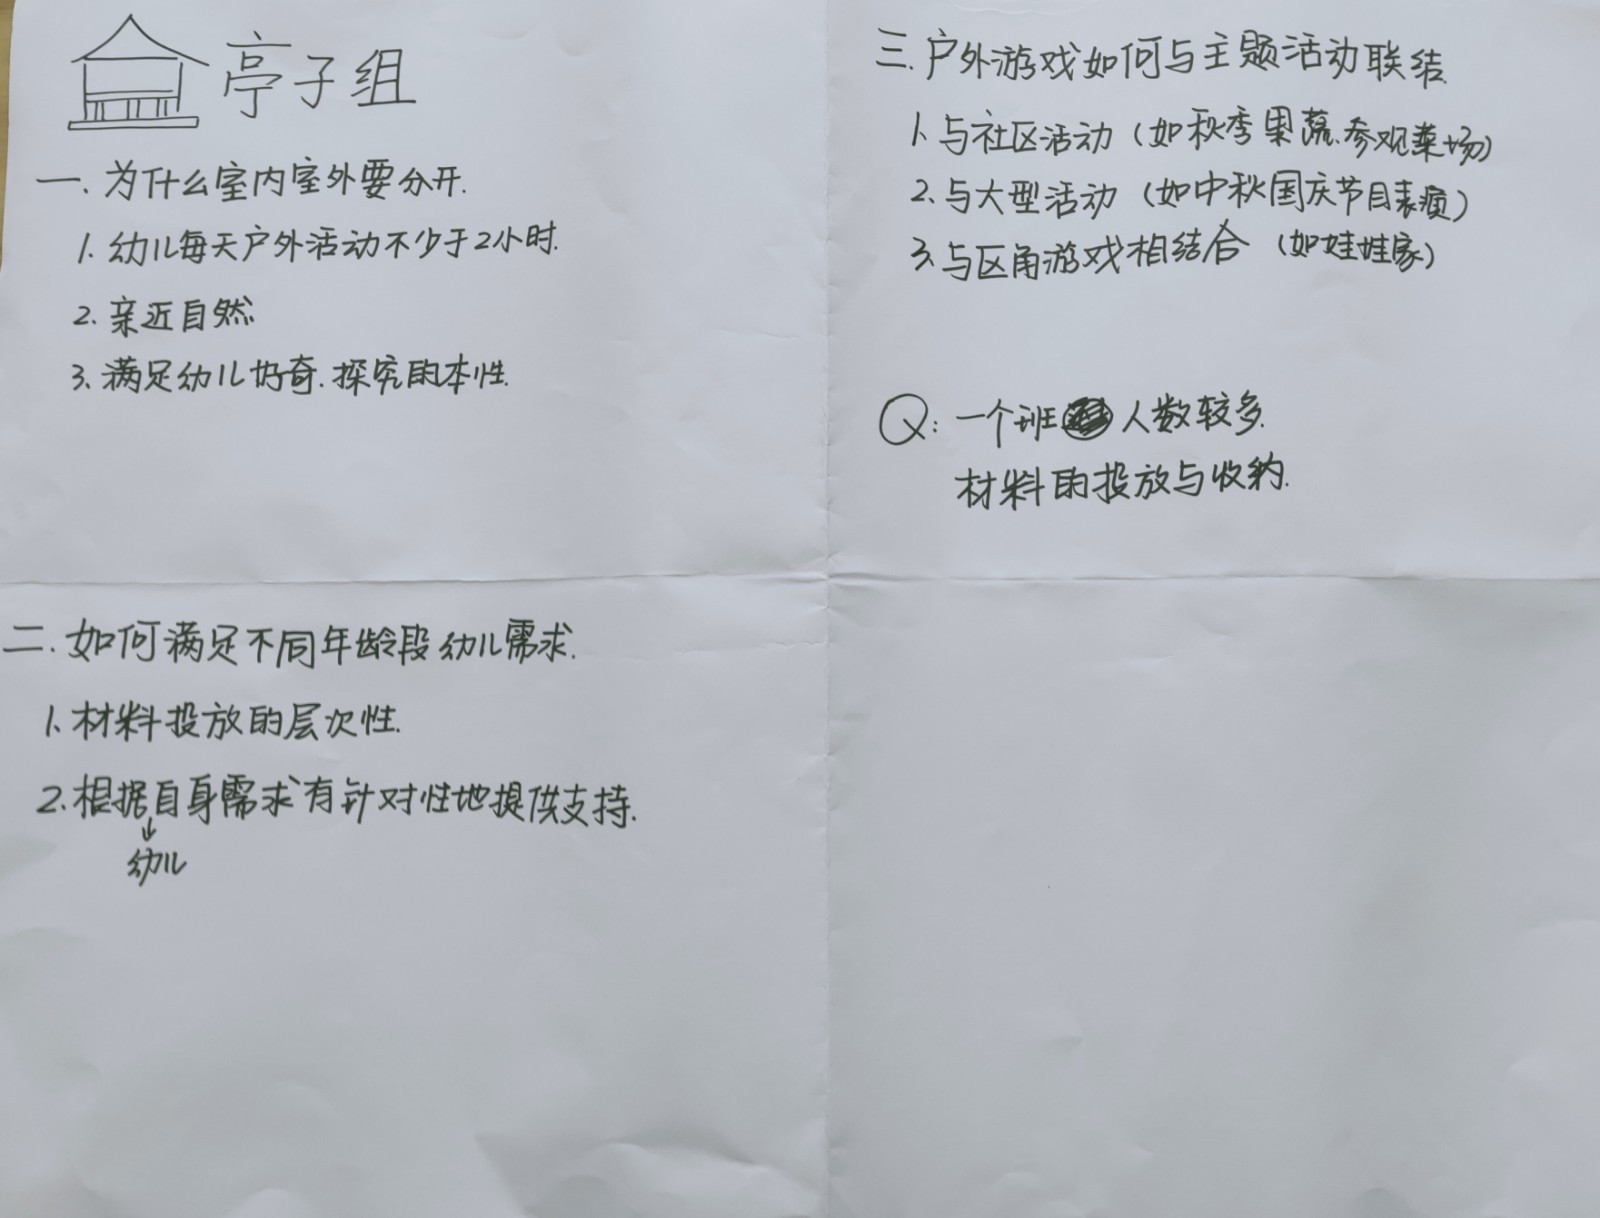 亭子组
一.为什么室内室外要分开.
1.幼儿每天户外活动不少于2小时.
2.亲近自然
3.满足幼儿好奇.探究的本性.
二.如何满足不同年龄段幼儿需求.
1.材料投放的层次性.
2.根据自身需求有针对性地提供支持.
↓
幼儿
三.户外游戏如何与主题活动联结.
1.与社区活动(如秋季果蔬.参观菜场)
2.与大型活动(如中秋国庆节目表演)
3.与区角游戏相结合(如娃娃家)
Q:一个班人数较多.
材料的投放与收纳.